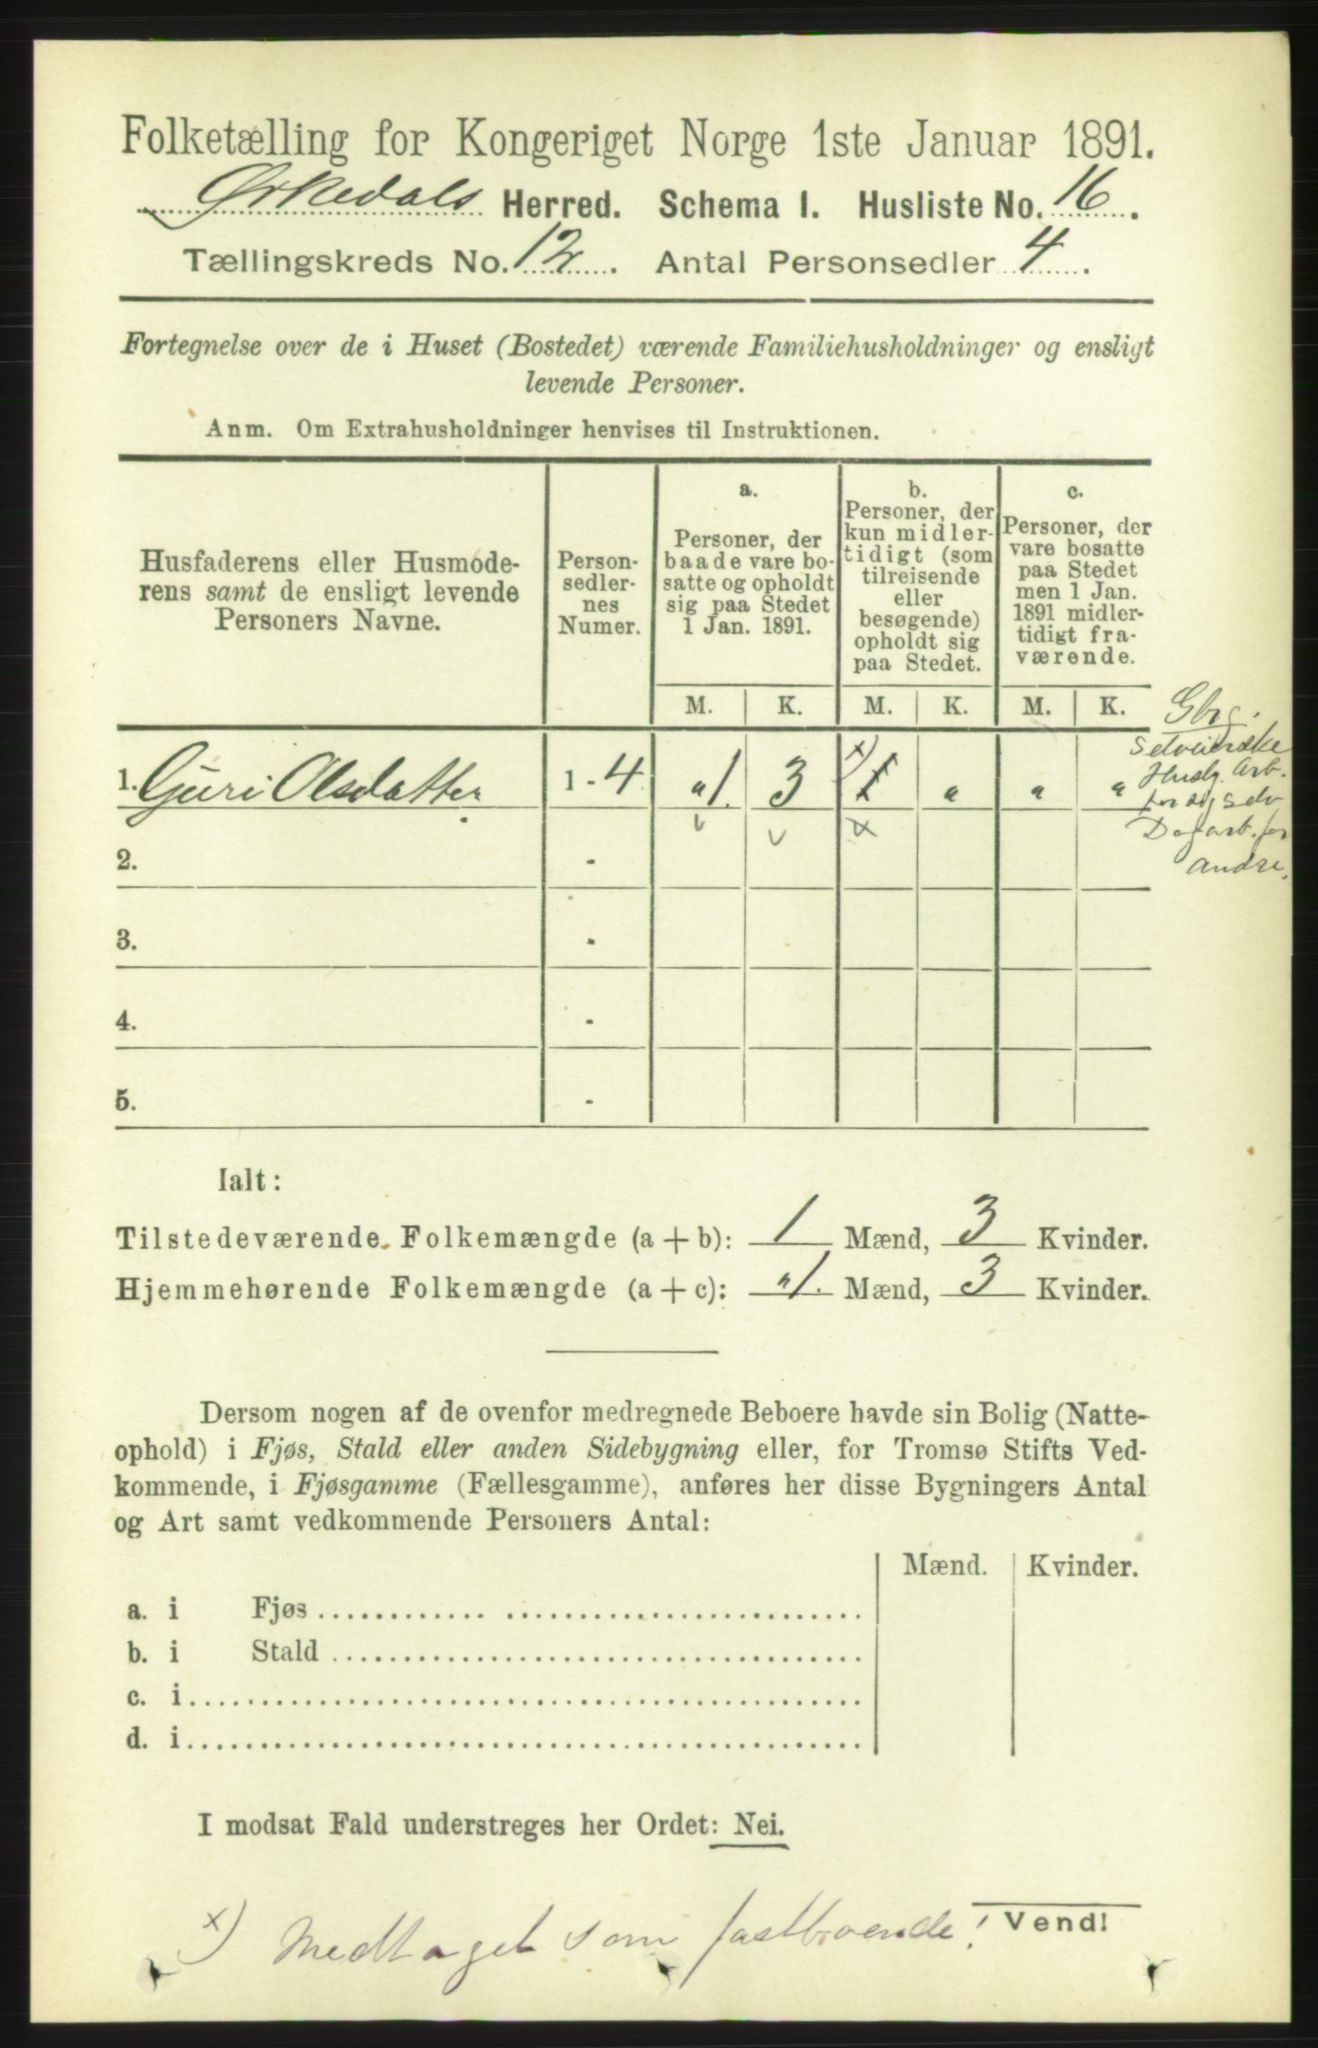 Folketælling for Kongeriget Norge 1ste Januar 1891.
Ørkedals Herred. Schema I. Husliste No. 16.
Tællingskreds No. 12. Antal Personsedler 4.
Fortegnelse over de i Huset (Bostedet) værende Familiehusholdninger og ensligt
levende Personer.
Anm. Om Extrahusholdninger henvises til Instruktionen.
Husfaderens eller Husmode-
rens samt de ensligt levende
Personers Navne.
Person-
sedler-
nes
Numer.
a.
Personer, der
baade vare bo-
satte og opholdt
sig paa Stedet
1 Jan. 1891.
b.
Personer, der
kun midler-
tidigt (som
tilreisende
eller
besøgende)
opholdt sig
paa Stedet.
c.
Personer, der
vare bosatte
paa Stedet
men 1 Jan.
1891 midler-
tidigt fra-
værende.
M. K. M. K. M. K.
Gbrg.
Selveierske
Husg. Arb.
for sig selv
Dagarb. for
andre.
1. Guri Olsdatter 1 - 4 " 1. 3 x) 1 " " "
2. -
3. -
4. -
5. -
Ialt:
Tilstedeværende Folkemængde (a + b): 1 Mænd, 3 Kvinder.
Hjemmehørende Folkemængde (a + c): " 1. Mænd, 3 Kvinder.
Dersom nogen af de ovenfor medregnede Beboere havde sin Bolig (Natte-
ophold) i Fjøs, Stald eller anden Sidebygning eller, for Tromsø Stifts Ved-
kommende, i Fjøsgamme (Fællesgamme), anføres her disse Bygningers Antal
og Art samt vedkommende Personers Antal:
Mænd. Kvinder.
a. i Fjøs
b. i Stald
c. i
d. i
I modsat Fald understreges her Ordet: Nei.
x) Medtaget som fastboende!
Vend!